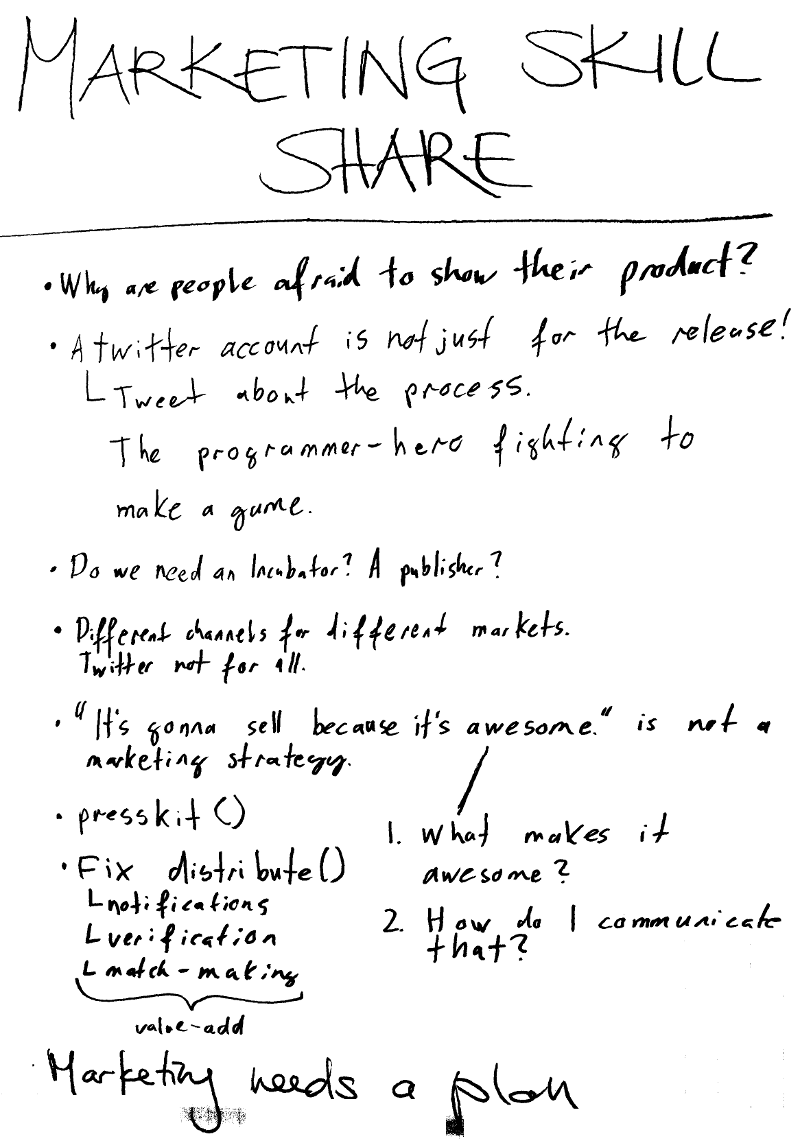 MARKETING SKILL
SHARE
• Why are people afraid to show their product?
• A twitter account is not just for the release!
└ Tweet about the process.
The programmer-hero fighting to
make a game.
• Do we need an Incubator? A publisher?
• Different channels for different markets.
Twitter not for all.
• "It's gonna sell because it's awesome." is not a
marketing strategy.
• presskit()
• Fix distribute()
└ notifications
└ verification
└ match-making
value-add
1. What makes it
awesome?
2. How do I communicate
that?
• Marketing needs a plan